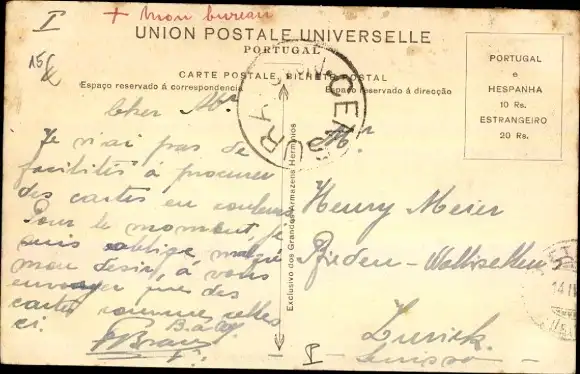 I
+ Mon bureau
15
UNION POSTALE UNIVERSELLE
PORTUGAL
CARTE POSTALE, BILHETE POSTAL
Espaço reservado á correspondencia
Espaço reservado á direcção
PORTUGAL
e
HESPANHA
10 Rs.
ESTRANGEIRO
20 Rs.
CENSURA
Cher Mr
Je n'ai pas de
facilités à procurer
des cartes en couleurs
Pour le moment, je
suis obligé malgré
mon desir, à vous
envoyer que des
cartes comme celles
ci.
Mr
Henry Meier
Wallisellen
Zurich
Suisse
I
Exclusivo dos Grandes Armazens Herminios
14